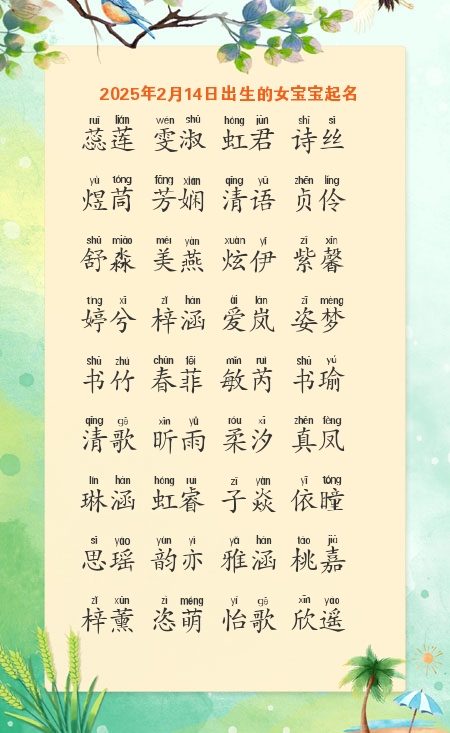 2025年2月14日出生的女宝宝起名
ruǐ lián wén shū hóng jūn shī sī
蕊莲 雯淑 虹君 诗丝
yù tóng fāng xián qīng yǔ zhēn líng
煜茼 芳娴 清语 贞伶
shū miǎo měi yàn xuàn yī zǐ xīn
舒淼 美燕 炫伊 紫馨
tíng xī zǐ hán ài lán zī mèng
婷兮 梓涵 爱岚 姿梦
shū zhú chūn fēi mǐn ruì shū yú
书竹 春菲 敏芮 书瑜
qīng gē xīn yǔ róu xī zhēn fèng
清歌 昕雨 柔汐 真凤
lín hán hóng ruì zǐ yàn yī tóng
琳涵 虹睿 子焱 依曈
sī yáo yùn yì yǎ hán táo jiā
思瑶 韵亦 雅涵 桃嘉
zǐ xūn zì méng yí gē xīn yáo
梓薰 恣萌 怡歌 欣遥